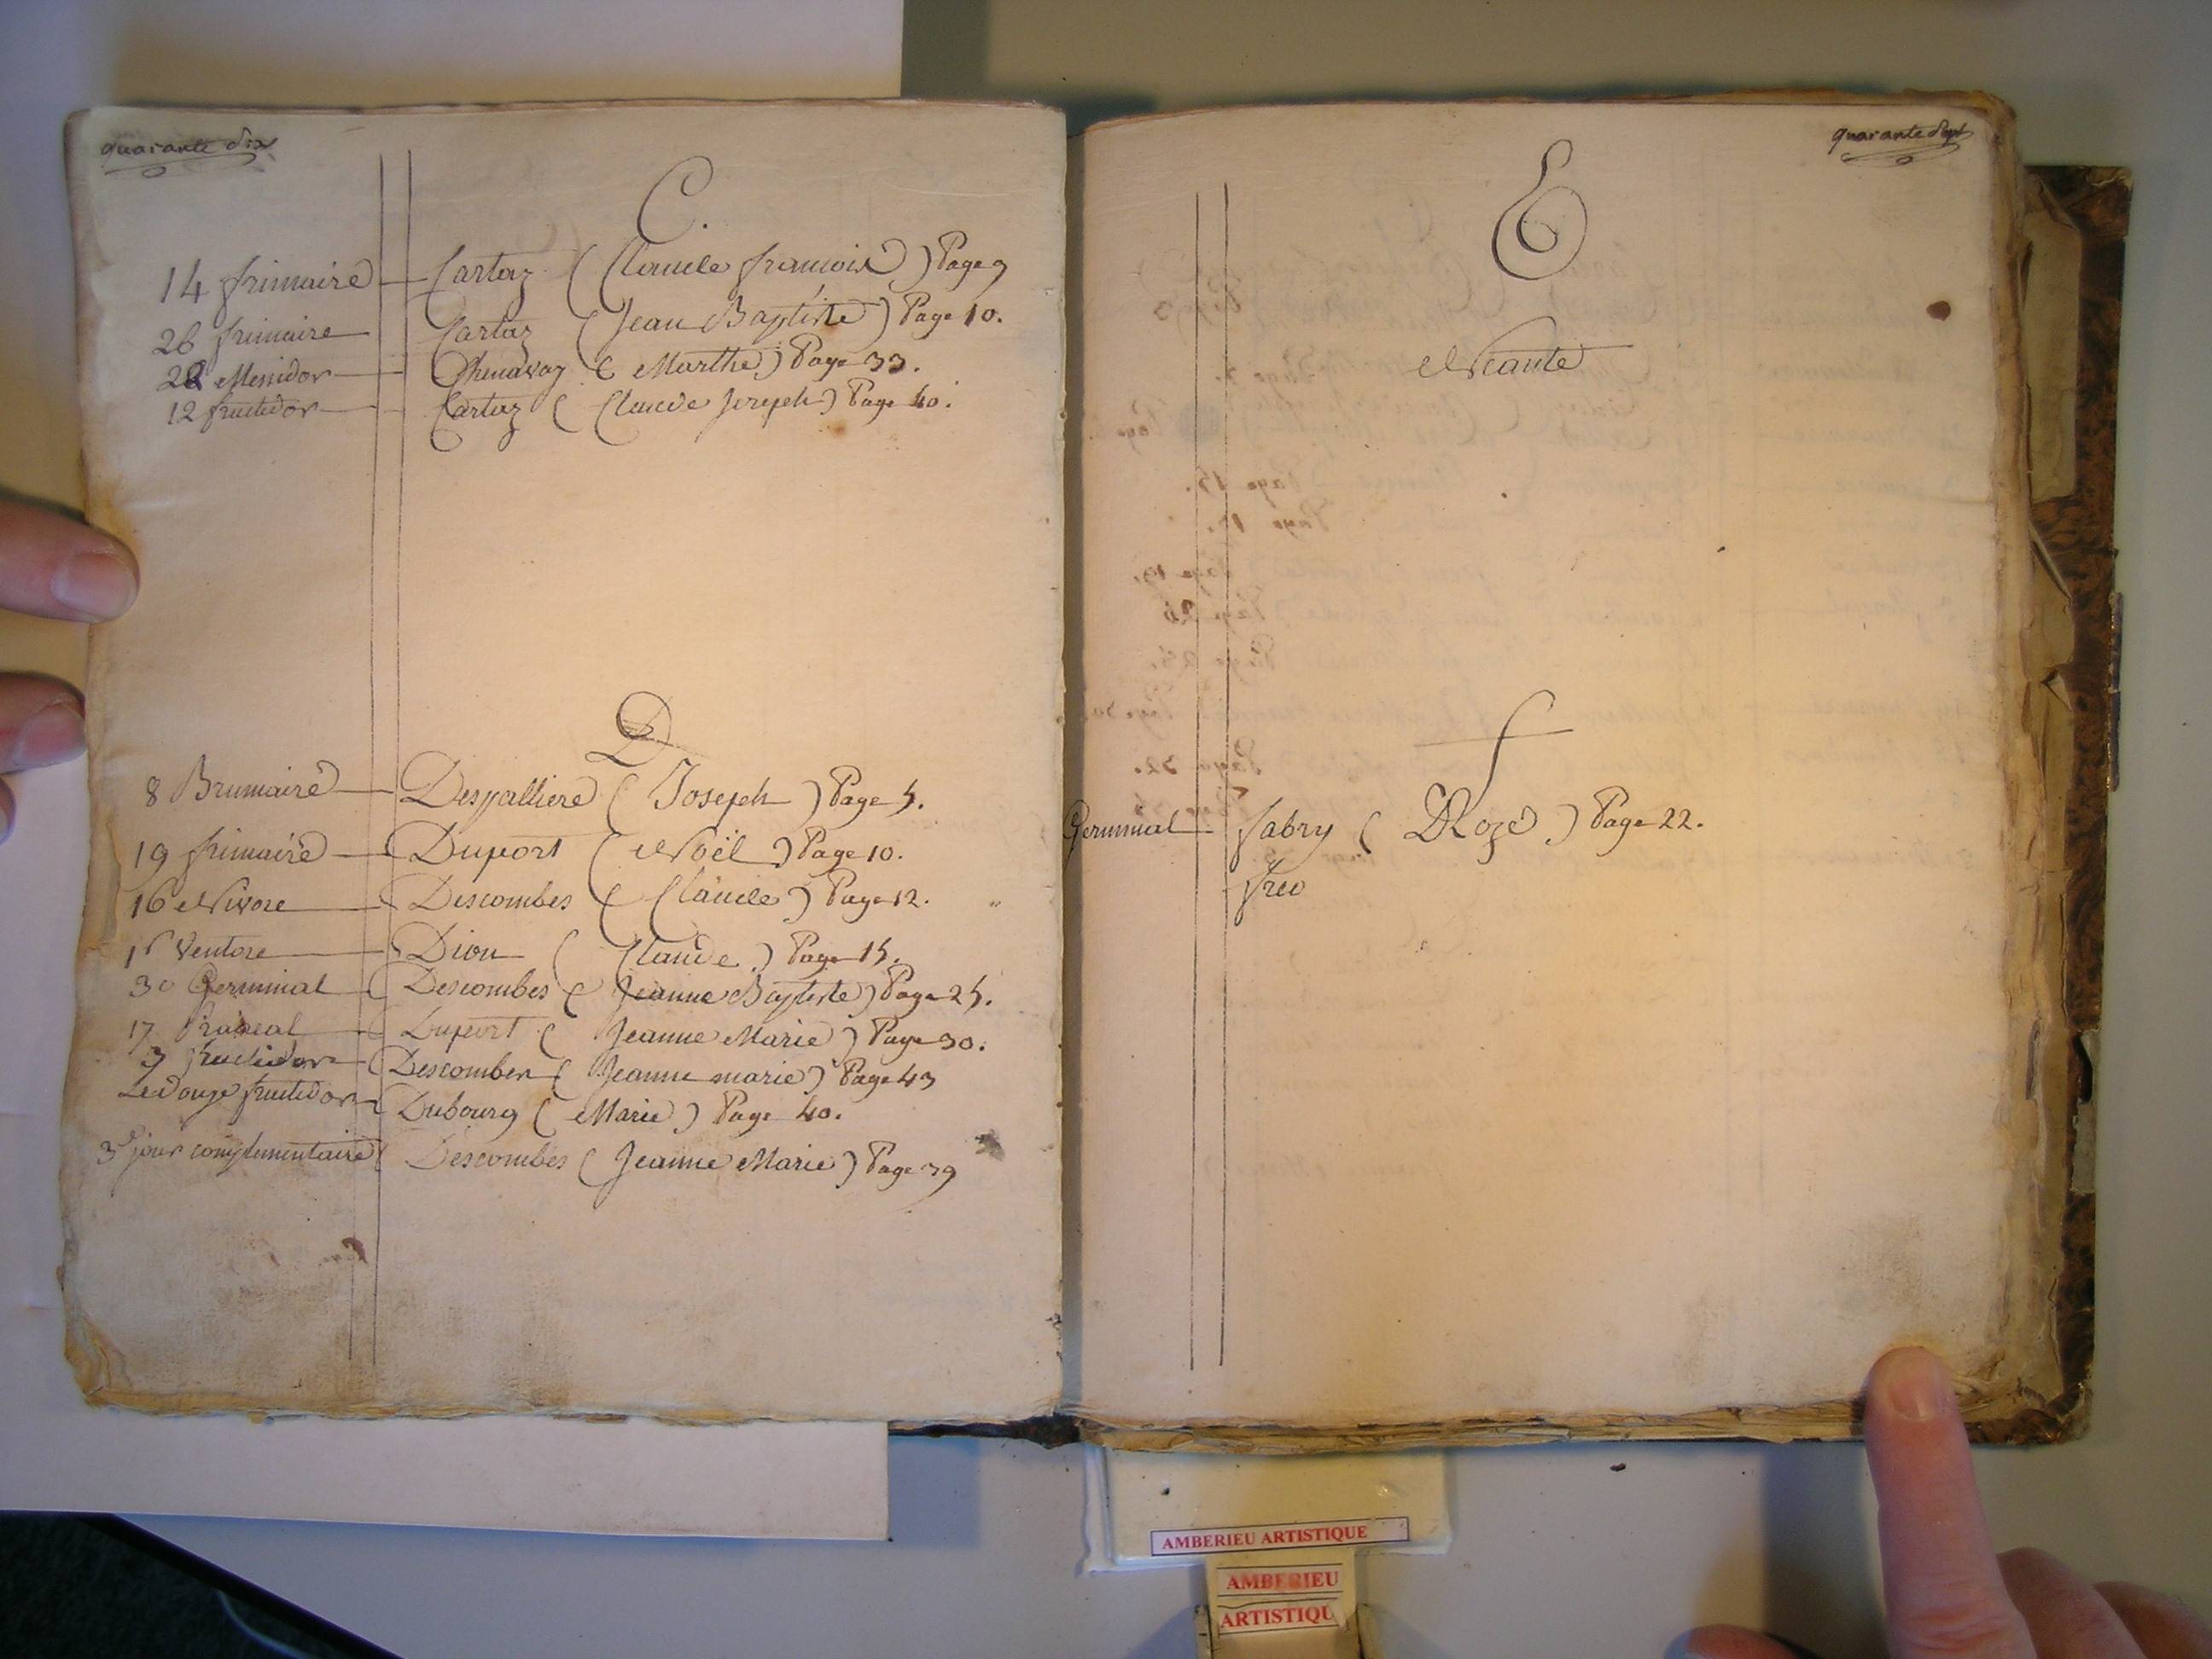 quarante six
C.
14 frimaire Cartaz (Claude francois) Page 9
26 frimaire Cartaz (Jean Baptiste) Page 10.
28 Messidor Chenavaz (Marthe) Page 33.
12 fructidor Cartaz (Claude Joseph) Page 40.
D
8 Brumaire Despalliere (Joseph) Page 5.
19 frimaire Duport (Noël) Page 10.
16 Nivose Descombes (Claude) Page 12.
Ventose Dion (Claude) Page 15.
30 Germinal Descombes (Jeanne Baptiste) Page 25.
17 Prairial Duport (Jeanne Marie) Page 30.
3 fructidor Descombes (Jeanne marie) Page 43
Le douze fructidor Dubourg (Marie) Page 40.
3e jour complementaire Descombes (Jeanne Marie) Page 39
quarante Sept
E
Néante
f
Germinal fabry (Roze) Page 22.
AMBERIEU ARTISTIQUE
AMBERIEU
ARTISTIQU